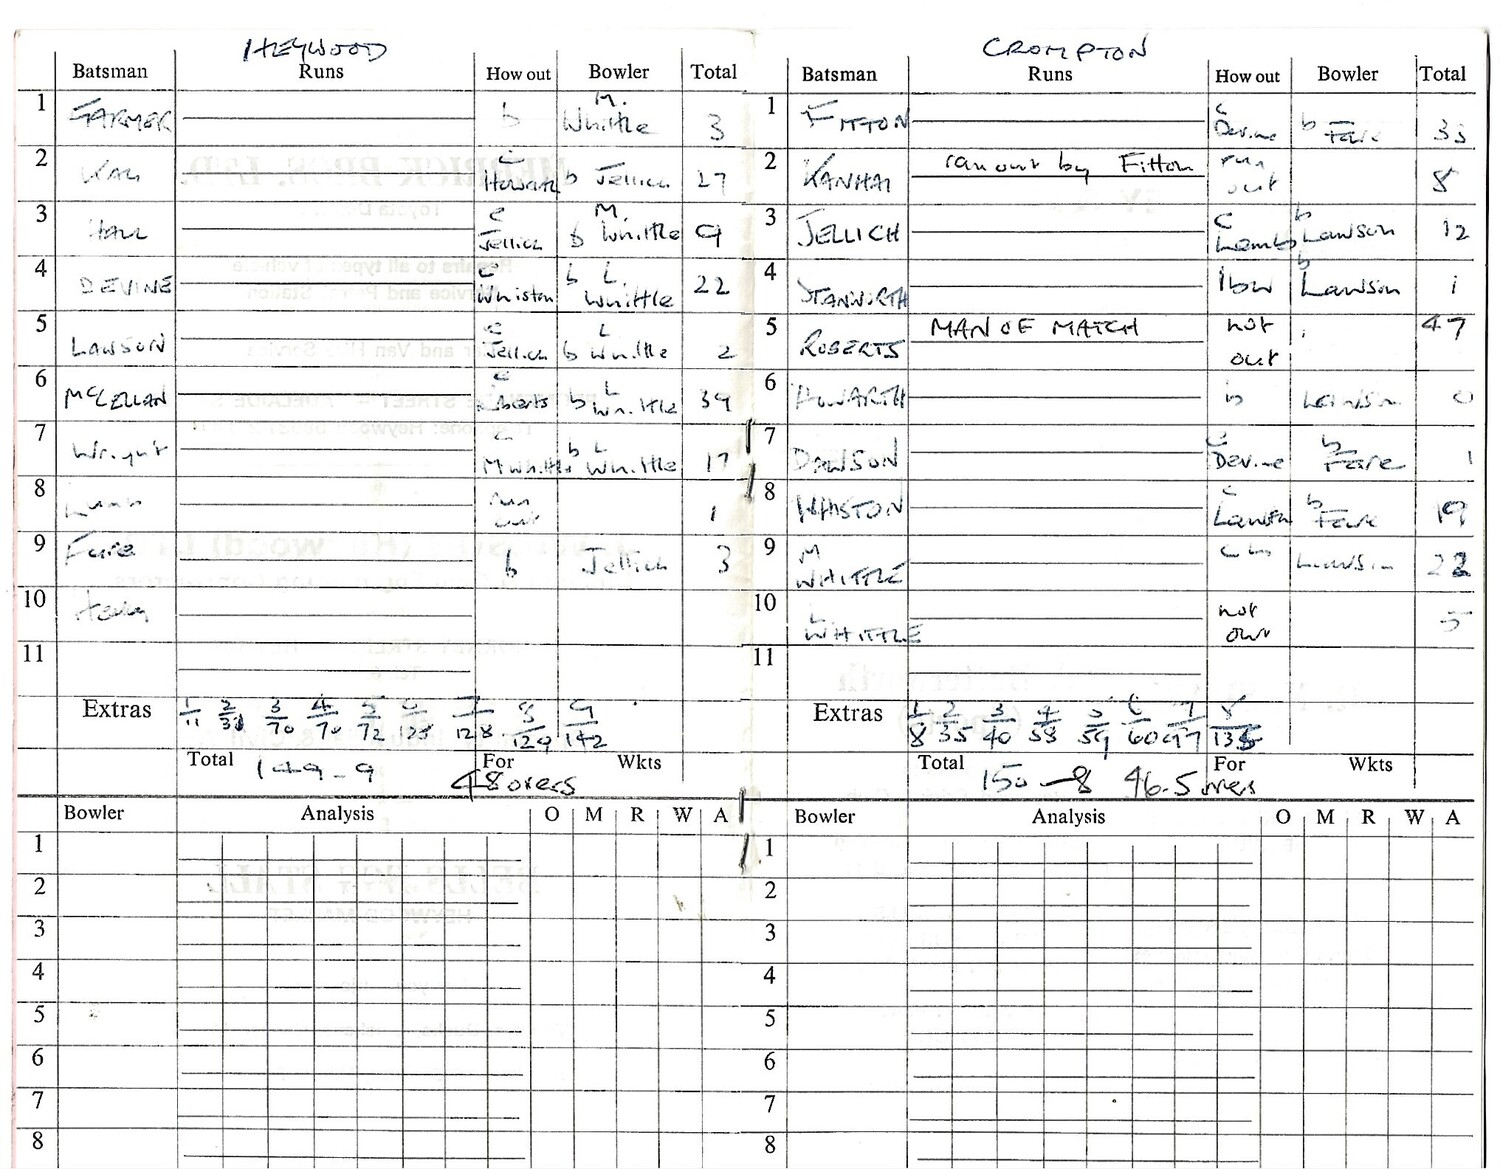 HEYWOOD
Batsman Runs How out Bowler Total
1 FARMER b M. Whittle 3
2 c Howarth b Jellich 27
3 HALL c Jellich b M. Whittle 9
4 DEVINE c Whiston b L. Whittle 22
5 LAWSON c Jellich b L Whittle 2
6 McLELLAN c Roberts b L Whittle 39
7 Wright c M Whittle b L Whittle 17
8 run out 1
9 Fare b Jellich 3
10
11
Extras 1/11 2/ 3/70 4/70 5/72 6/125 7/128 8/129 9/142
Total 149-9 For 48 overs Wkts
Bowler Analysis O M R W A
1
2
3
4
5
6
7
8
CROMPTON
Batsman Runs How out Bowler Total
1 FITTON c Devine b Fare 33
2 KANHAI ran out by Fitton run out 8
3 JELLICH c Lamb b Lawson 12
4 STANWORTH lbw b Lawson 1
5 ROBERTS MAN OF MATCH not out 47
6 HOWARTH b Lawson 0
7 DAWSON c Devine b Fare 1
8 WHISTON c Lawson b Fare 19
9 M WHITTLE Lawson 22
10 L WHITTLE not out 5
11
Extras 1/8 2/35 3/40 4/58 5/59 6/60 7/97 8/135
Total 150-8 For 46.5 overs Wkts
Bowler Analysis O M R W A
1
2
3
4
5
6
7
8